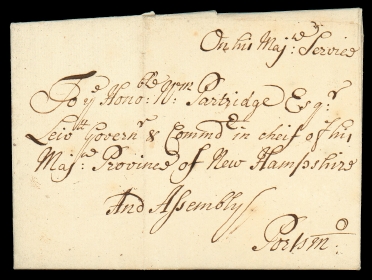 On his Maj:ties Service
To ye Honoble: Wm Partridge Esqr:
Leivtt Governr & Commdr in cheif of his
Maj:ties Province of New Hampshire
And Assembly
Portsmo: